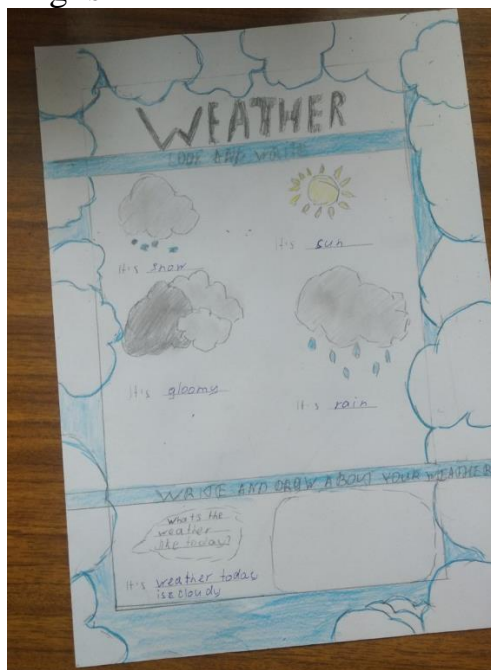 WEATHER
LOOK AND WRITE
It's snow
It's sun
It's gloomy
It's rain
WRITE AND DRAW ABOUT YOUR WEATHER
What's the
weather
like today?
It's weather today
is a cloudy